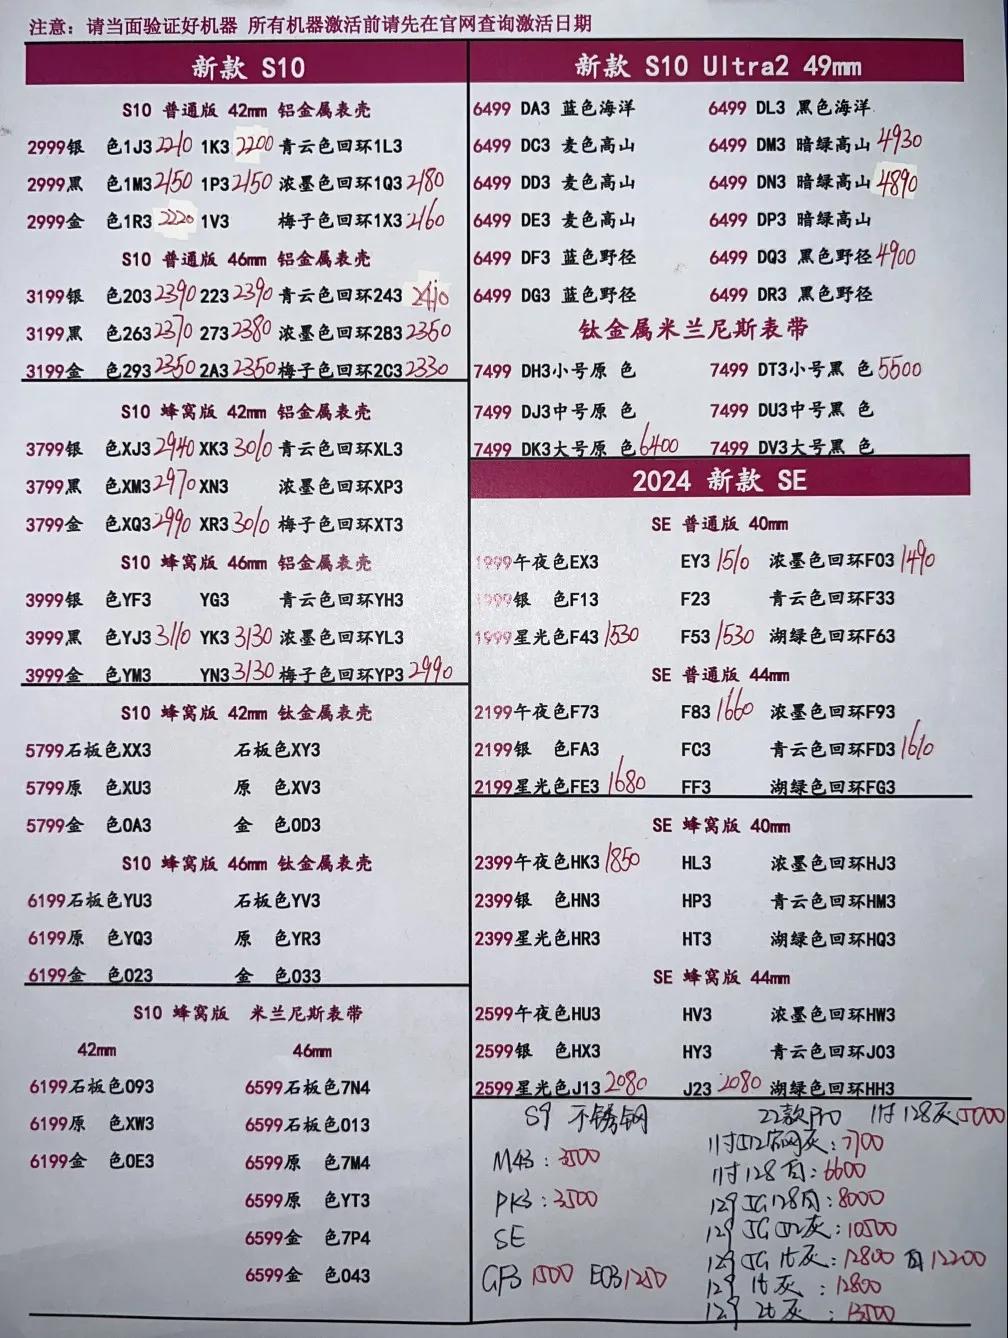 注意：请当面验证好机器 所有机器激活前请先在官网查询激活日期
新款 S10
S10 普通版 42mm 铝金属表壳
2999银 色1J3 2210 1K3 2200 青云色回环1L3
2999黑 色1M3 2150 1P3 2150 浓墨色回环1Q3 2180
2999金 色1R3 2220 1V3 梅子色回环1X3 2160
S10 普通版 46mm 铝金属表壳
3199银 色203 2390 223 2390 青云色回环243 2410
3199黑 色263 2370 273 2380 浓墨色回环283 2350
3199金 色293 2350 2A3 2350 梅子色回环2C3 2330
S10 蜂窝版 42mm 铝金属表壳
3799银 色XJ3 2940 XK3 3010 青云色回环XL3
3799黑 色XM3 2970 XN3 浓墨色回环XP3
3799金 色XQ3 2990 XR3 3010 梅子色回环XT3
S10 蜂窝版 46mm 铝金属表壳
3999银 色YF3 YG3 青云色回环YH3
3999黑 色YJ3 3110 YK3 3130 浓墨色回环YL3
3999金 色YM3 YN3 3130 梅子色回环YP3 2990
S10 蜂窝版 42mm 钛金属表壳
5799石板色XX3 石板色XY3
5799原 色XU3 原 色XV3
5799金 色0A3 金 色0D3
S10 蜂窝版 46mm 钛金属表壳
6199石板色YU3 石板色YV3
6199原 色YQ3 原 色YR3
6199金 色023 金 色033
S10 蜂窝版 米兰尼斯表带
42mm 46mm
6199石板色093 6599石板色7N4
6199原 色XW3 6599石板色013
6199金 色0E3 6599原 色7M4
6599原 色YT3
6599金 色7P4
6599金 色043
新款 S10 Ultra2 49mm
6499 DA3 蓝色海洋 6499 DL3 黑色海洋
6499 DC3 麦色高山 6499 DM3 暗绿高山 4930
6499 DD3 麦色高山 6499 DN3 暗绿高山 4890
6499 DE3 麦色高山 6499 DP3 暗绿高山
6499 DF3 蓝色野径 6499 DQ3 黑色野径 4900
6499 DG3 蓝色野径 6499 DR3 黑色野径
钛金属米兰尼斯表带
7499 DH3小号原 色 7499 DT3小号黑 色 5500
7499 DJ3中号原 色 7499 DU3中号黑 色
7499 DK3大号原 色 6400 7499 DV3大号黑 色
2024 新款 SE
SE 普通版 40mm
1999午夜色EX3 EY3 1510 浓墨色回环F03 1490
1999银 色F13 F23 青云色回环F33
1999星光色F43 1530 F53 1530 湖绿色回环F63
SE 普通版 44mm
2199午夜色F73 F83 1660 浓墨色回环F93
2199银 色FA3 FC3 青云色回环FD3 1610
2199星光色FE3 1680 FF3 湖绿色回环FG3
SE 蜂窝版 40mm
2399午夜色HK3 1850 HL3 浓墨色回环HJ3
2399银 色HN3 HP3 青云色回环HM3
2399星光色HR3 HT3 湖绿色回环HQ3
SE 蜂窝版 44mm
2599午夜色HU3 HV3 浓墨色回环HW3
2599银 色HX3 HY3 青云色回环J03
2599星光色J13 2080 J23 2080 湖绿色回环HH3
S9 不锈钢
M43：3500
PK3：3500
SE
GF3 1500 E03 1250
22款Pro 11寸 128灰 5000
11寸512官网灰：7100
11寸 128 白：6600
12.9 5G 128白：8000
12.9 5G 512灰：10500
12.9 5G 1t灰：12800 白 12200
12.9 1t灰：12800
12.9 2t灰：13500